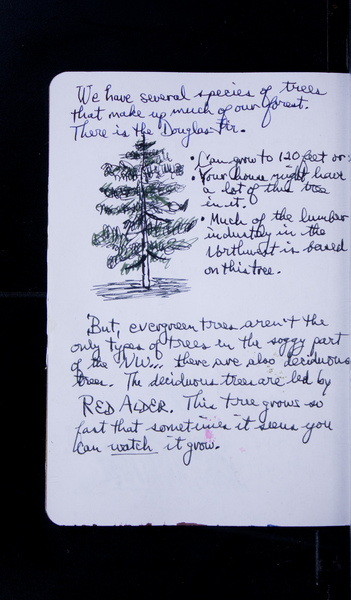 We have several species of trees
that make up much of our forest.
There is the Douglas Fir.
• Can grow to 120 feet or
• Your house might have
a lot of this tree
in it.
• Much of the lumber
industry in the
Northwest is based
on this tree.
But, evergreen trees aren't the
only types of trees in the soggy part
of the NW... there are also deciduous
trees. The deciduous trees are led by
RED ALDER. This tree grows so
fast that sometimes it seems you
can watch it grow.